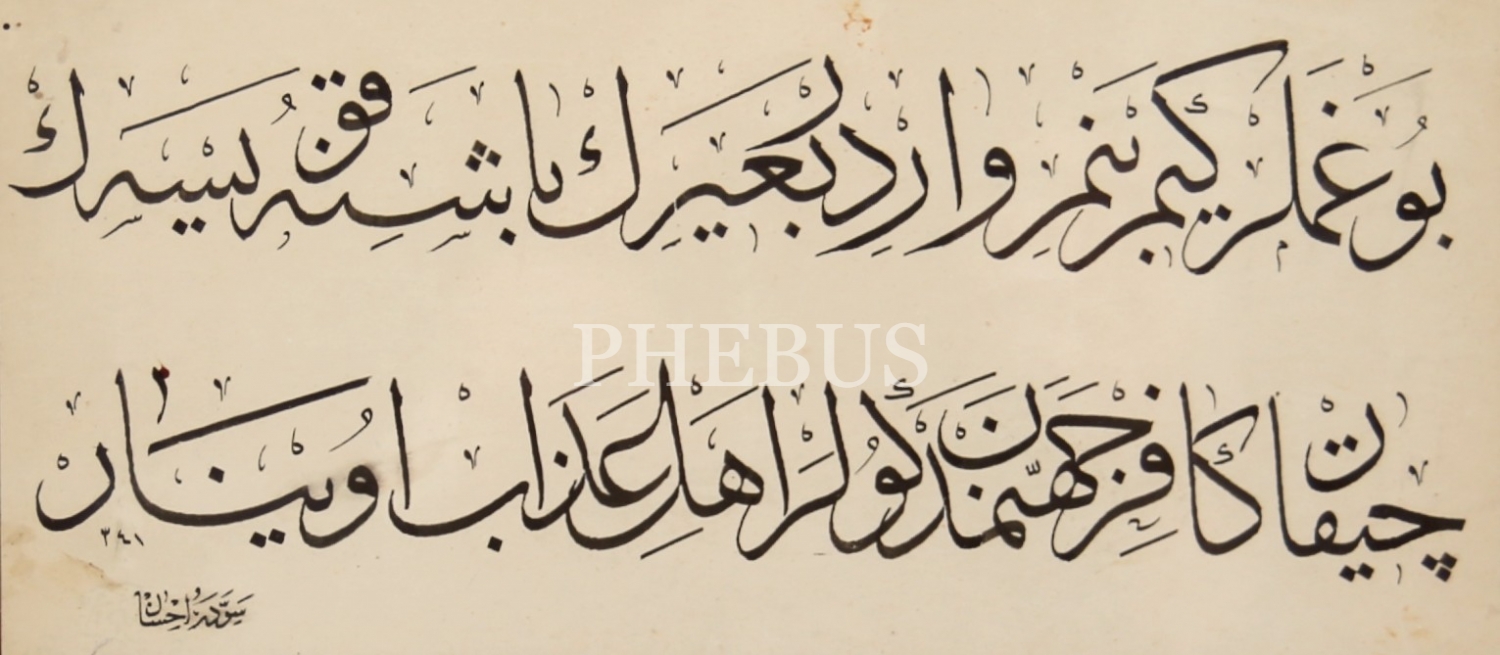 بو غملر كيم بنم واردر بعيرك باشنه قويسه ك
PHEBUS
چيقار كافر جهنمدن كولر اهل عذاب اوينار
٣٤١
سوده احسان